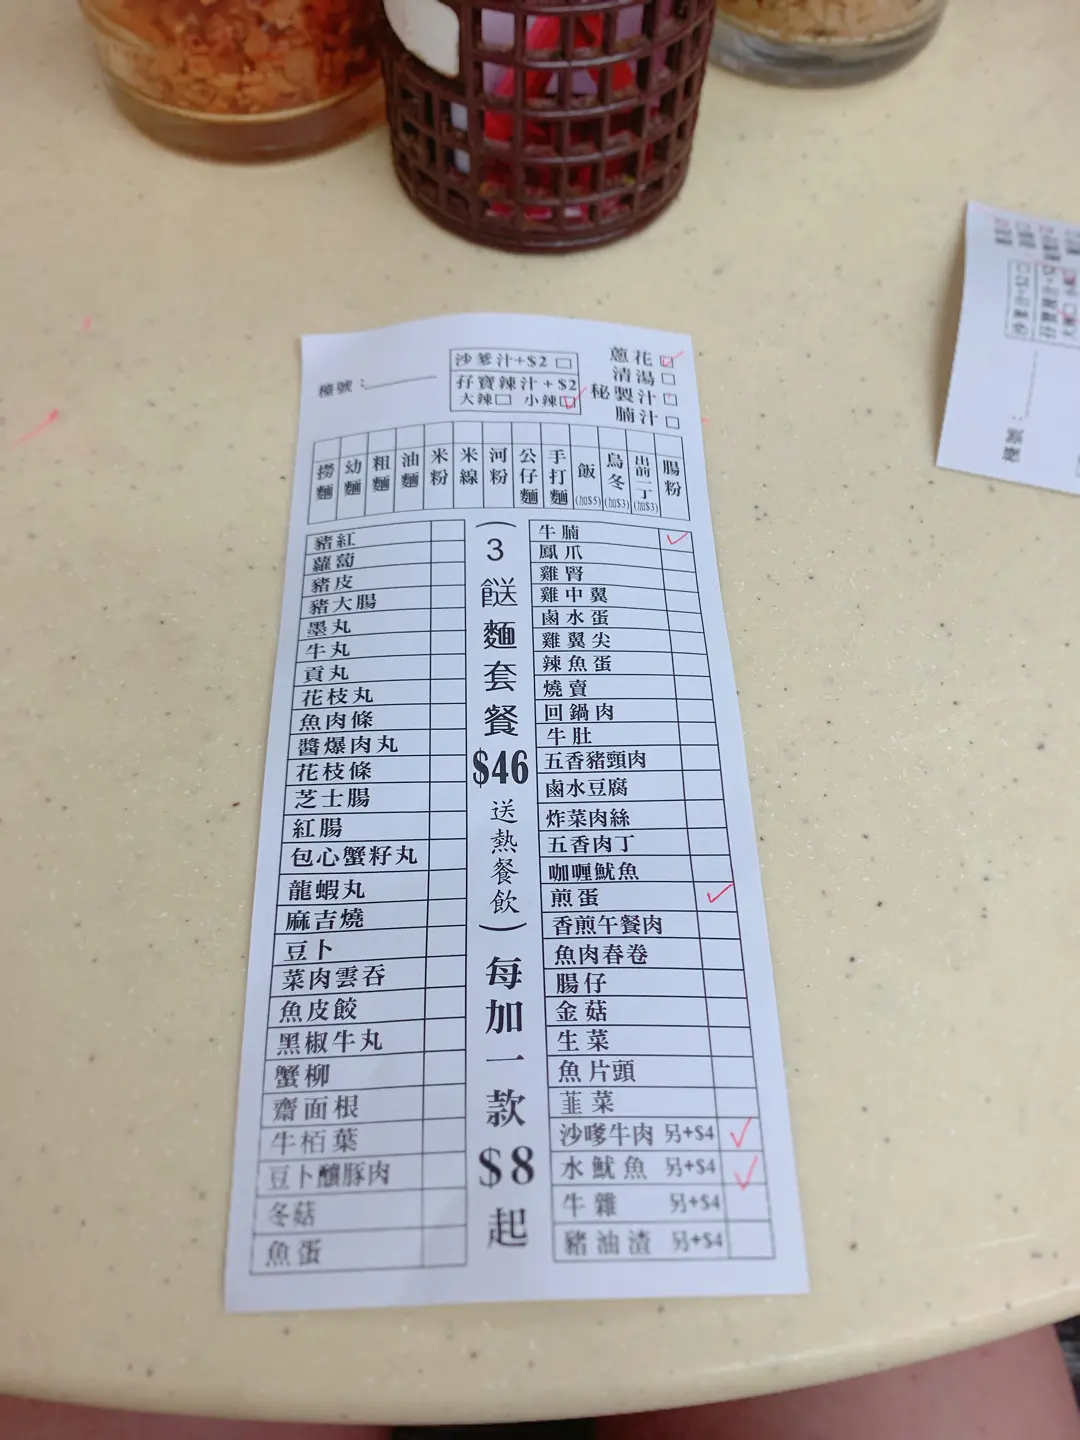 沙爹汁+$2 □
孖寶辣汁+$2
大辣□ 小辣□
蔥花□
清湯□
秘製汁□
腩汁□
檯號：
撈麵
幼麵
粗麵
油麵
米粉
米線
河粉
公仔麵
手打麵
飯(加$5)
烏冬(加$3)
出前一丁(加$3)
腸粉
豬紅
蘿蔔
豬皮
豬大腸
墨丸
牛丸
貢丸
花枝丸
魚肉條
醬爆肉丸
花枝條
芝士腸
紅腸
包心蟹籽丸
龍蝦丸
麻吉燒
豆卜
菜肉雲吞
魚皮餃
黑椒牛丸
蟹柳
齋面根
牛栢葉
豆卜釀豚肉
冬菇
魚蛋
(3餸麵套餐$46送熱餐飲)每加一款$8起
牛腩
鳳爪
雞腎
雞中翼
鹵水蛋
雞翼尖
辣魚蛋
燒賣
回鍋肉
牛肚
五香豬頸肉
鹵水豆腐
炸菜肉絲
五香肉丁
咖喱魷魚
煎蛋
香煎午餐肉
魚肉春卷
腸仔
金菇
生菜
魚片頭
韮菜
沙嗲牛肉 另+$4
水魷魚 另+$4
牛雜 另+$4
豬油渣 另+$4
沙爹汁+$2□
檯號：